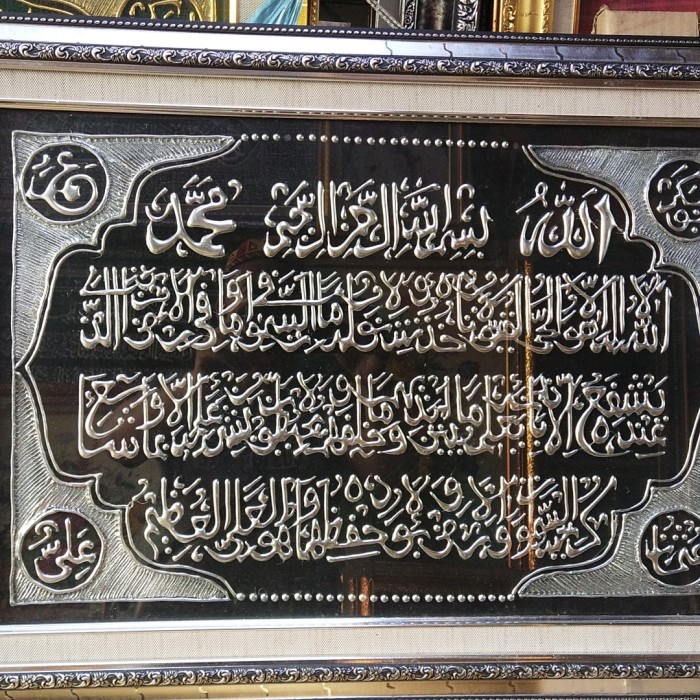 بكر
الله بسم الله الرحمن الرحيم محمد
عمر
الله لا اله الا هو الحي القيوم لا تأخذه سنة ولا نوم له ما في السموات وما في الارض من ذا الذي
يشفع عنده الا باذنه يعلم ما بين ايديهم وما خلفهم ولا يحيطون بشيء من علمه الا بما شاء وسع
كرسيه السموات والارض ولا يؤده حفظهما وهو العلي العظيم
علي